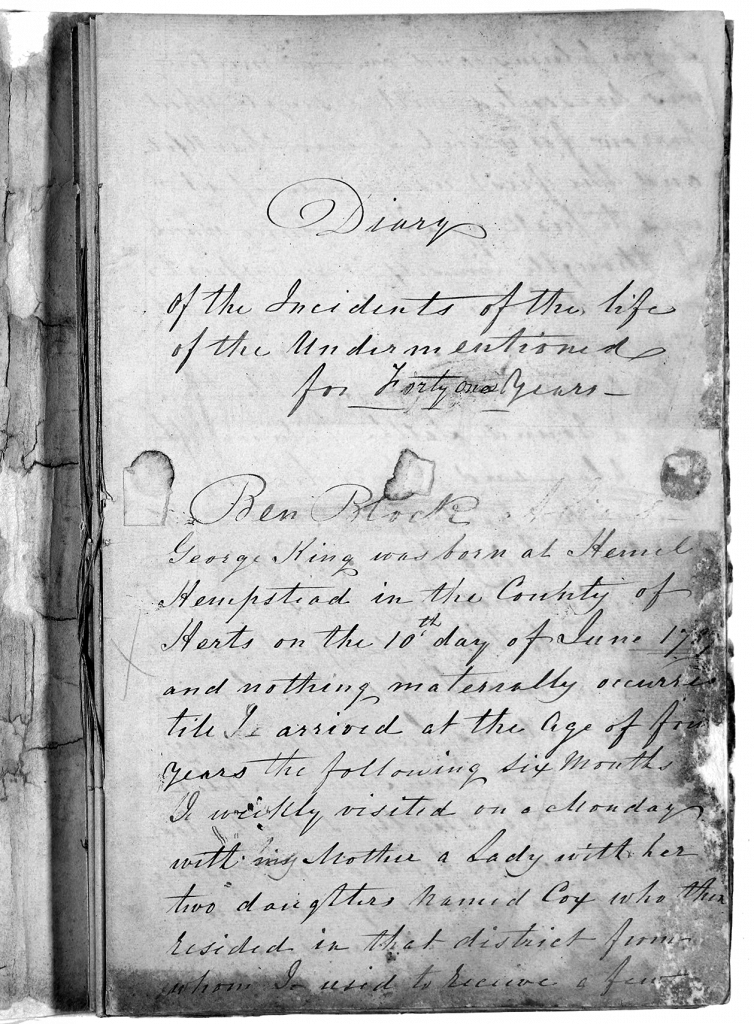 Diary
of the Incidents of the life
of the Undermentioned
for Forty one Years —
Ben Block
George King was born at Hemel
Hempstead in the County of
Herts on the 10th day of June
and nothing materrally occurre
till I arrived at the Age of fou
years the following Six Months
I weekly visited on a Monday
with my Mother a Lady with her
two daugtters named Cox who then
resided in that district from
whom I used to receive a few